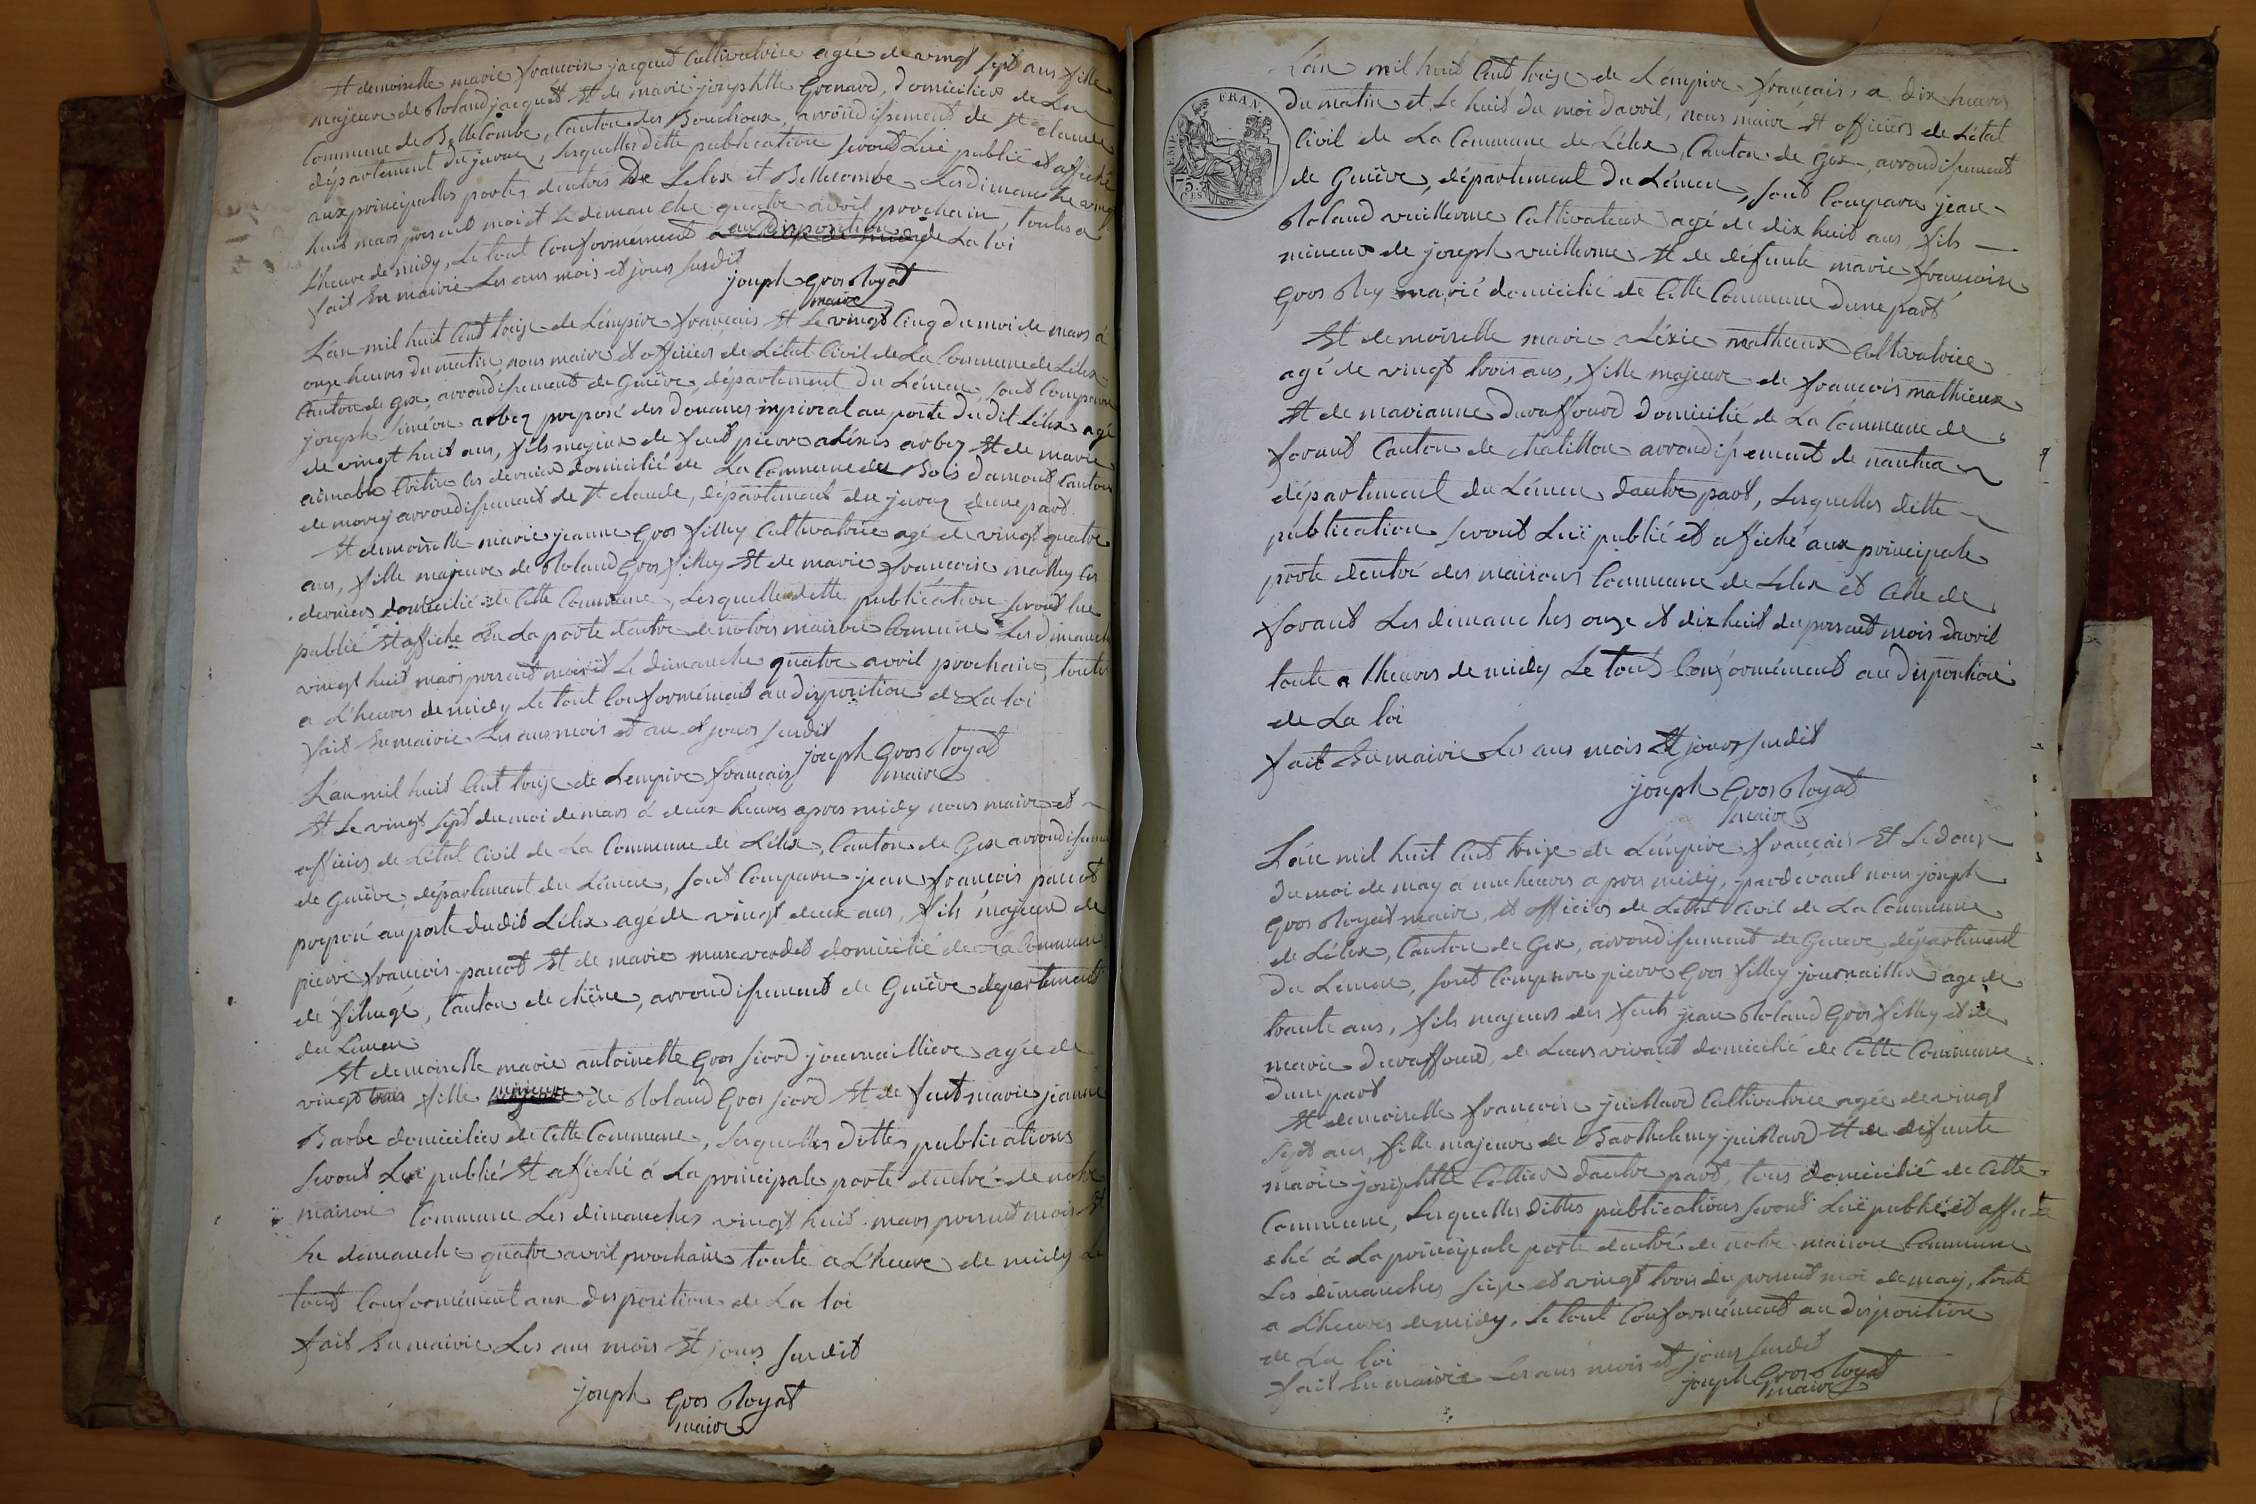 Et demoiselle marie francoise jacquet Cultivatrice agée de vingt sept ans fille
majeure de Roland jacquet Et de marie josephtte Grenard, domiciliés de La
Commune de Bellecombe, Canton des Bouchoux, arrondisement de St claude
département du jura, Lesquelles dette publication seront Lui publié et affiché
aux principalles portes dentrés De Lelex et Bellecombe Les dimanche vingt
huit mars present moi et Le dimanche quatre avril prochain, toutes a
L'heure de midy, Le tout Conformément aux disposition de La loi
fait En mairie Les ans mois et jours susdit
joseph Gros Royat
maire
L'an mil huit Cent treize de L'empire français Et Le vingt Cinq du moi de mars à
onze heures du matin, nous maire et officiers de L'état Civil de La Commune de Lélex
Canton de gex, arrondisement de Genève, département du Léman, sont Comparu
joseph Siméon arbez preposé des douanes impérial au poste du dit Lélex agé
de vingt huit ans, fils majeur de feut pierre aléxis arbez Et de marie
aimable les dernier domicilié de La Commune de Bois damont Canton
de morez arrondisement de St claude, département du jura, dune part.
Et demoiselle marie jeanne Gros filley Cultivatrice agé de vingt quatre
ans, fille majeure de Roland Gros filley Et de marie francoise malley les
derniers domicilié de Cette Commune, Lesquelle dette publication seront lue
publié Et affiché En La porte dentre de notres maison Commune Les dimanche
vingt huit mars present mois et Le dimanche quatre avril prochain, toutes
a L'heures de midy Le tout Conformément au disposition de La loi
fait En mairie Les ans mois et an et jours susdit
joseph Gros Royat
maire
L'an mil huit Cent treize de L'empire français
Et Le vingt sept du moi de mars à deux heures apres midy nous maire et
officiers de L'état Civil de La Commune de Lélex, Canton de Gex arrondisement
de Genève, département du Léman, sont Comparu jean francois pacect
preposé au poste dudit Lélex agé de vingt deux ans, fils majeur de
pierre francois pacect Et de marie domicilié de La Commune
de filinge, Canton de chêne, arrondisement de Genève departement
du Leman
Et demoiselle marie antoinette Gros fiord journaillière agée de
vingt trois fille mineure de Roland Gros fiord Et de feut marie jeanne
Barbe domiciliés de Cette Commune, Lesquelles dittes publications
seront Lui publié Et affiché à La principale porte dentré de notre
maison Commune Les dimanches vingt huit mars present mois Et
Le dimanche quatre avril prochain toute a L'heure de midy Le
tout Conformément aux disposition de La loi
fait En mairie Les ans mois Et jours susdit
joseph Gros Royat
maire
L'an mil huit Cent treize de L'émpire français, a dix heures
du matin et Le huit du moi Davril, nous maire Et officiers de L'état
Civil de La Commune de Lélex, Canton de Gex, arrondisement
de Genève, département du Léman, sont Comparu jean
Roland vuillerme Cultivateur agé de dix huit ans, fils
mineur de joseph vuillerme Et de défunte marie francoise
Gros Rey marié domicilié de Cette Commune dune part
Et demoiselle marie aléxie mathieux Cultivatrice
agé de vingt trois ans, fille majeure de francois mathieux
Et de marianne Duraffourd domicilié de La Commune de
forant Canton de chatillon arrondisement de nantua
département du Léman dautre part, Lesquelles dette
publication seront Lui publié et affiché aux principale
porte dentré des maisons Commune de Lelex et Celle de
forant Les dimanches onze et dix huit du present mois davril
toute a lheures de midy Le tout Conformément au disposition
de La loi
fait En mairie Les ans mois Et jours susdit
joseph Gros Royat
maire
L'an mil huit Cent treize de L'émpire français Et Le douze
du moi de may à une heures apres midy, pardevant nous joseph
Gros Royat maire, et officiers de L'état Civil de La Commune
de Lélex, Canton de Gex, arrondisement de Geneve, département
du Leman, sont Comparu pierre Gros filley journaillier agé de
trante ans, fils majeurs des feuts jean Roland Gros filley et de
marie duraffourd, de Leurs vivant domicilié de Cette Commune
dune part
Et demoiselle francoise juillard Cultivatrice agée de vingt
sept ans, fille majeure de Barthelemy juillard Et de défunte
marie josephtte Cottier dautre part, tous domicilié de Cette
Commune, Lesquelles dittes publications seront Lui publié et affi
ché à La principale porte dentré de notre maison Commune
Les dimanches seize et vingt trois du present moi de may, toute
a L'heures de midy, Le tout Conformément au disposition
de La loi
fait En mairie Les ans mois et jours susdit
joseph Gros Royat
maire
EMP. FRAN.
75.
CES